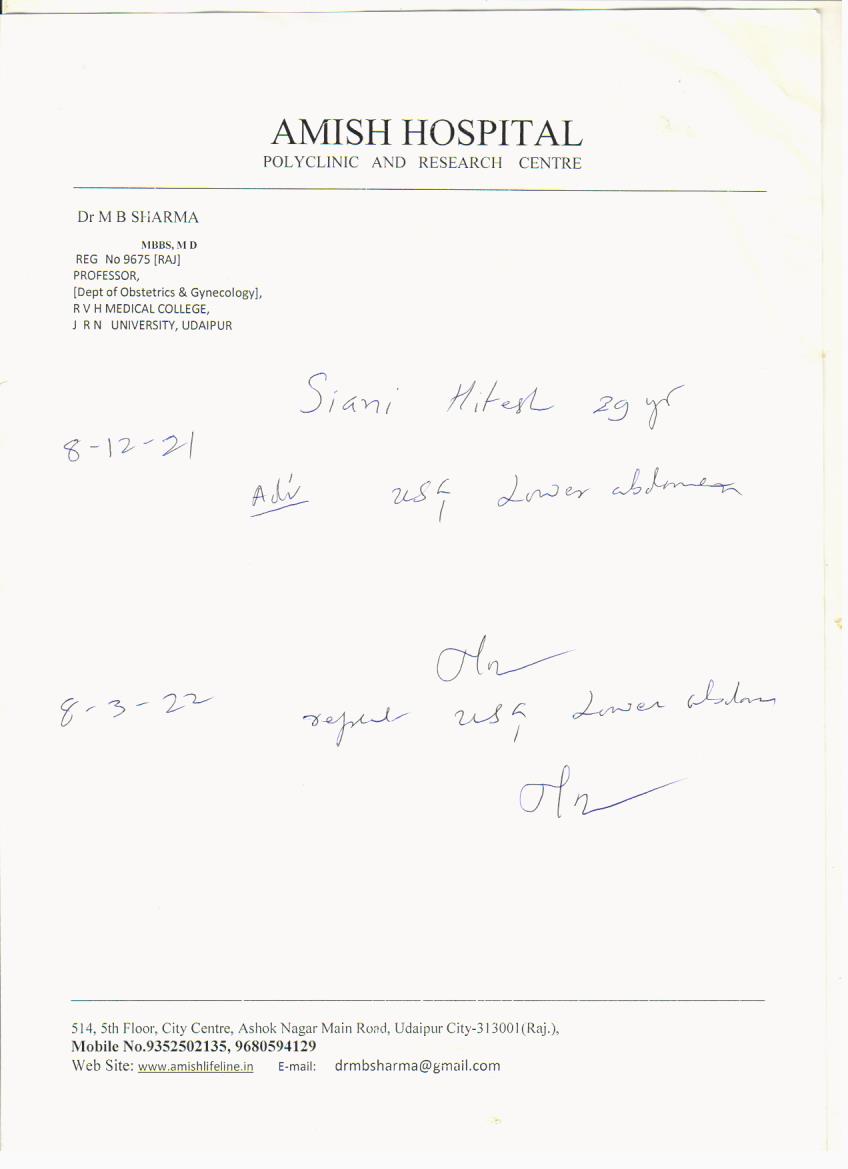 AMISH HOSPITAL
POLYCLINIC AND RESEARCH CENTRE
Dr M B SHARMA
MBBS, M D
REG No 9675 [RAJ]
PROFESSOR,
[Dept of Obstetrics & Gynecology],
R V H MEDICAL COLLEGE,
J R N UNIVERSITY, UDAIPUR
Siani Hitesh 29 yr
8-12-21
Adv USG Lower abdomen
8-3-22
repeat USG Lower abdom
514, 5th Floor, City Centre, Ashok Nagar Main Road, Udaipur City-313001(Raj.),
Mobile No.9352502135, 9680594129
Web Site: www.amishlifeline.in E-mail: drmbsharma@gmail.com